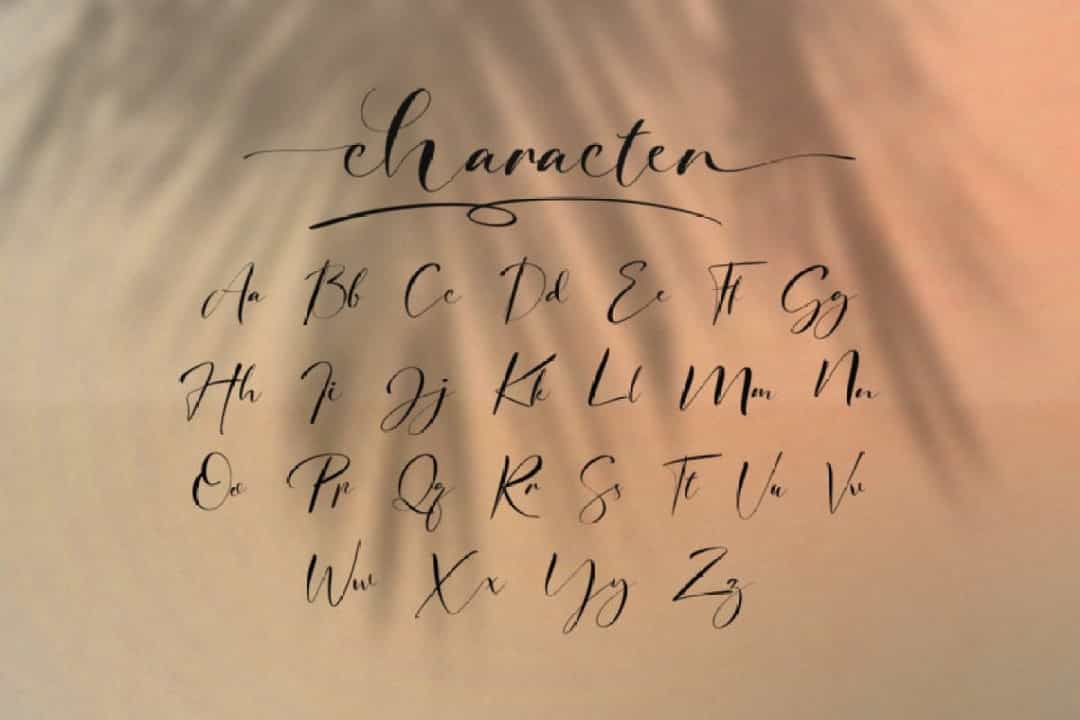 character
Aa Bb Cc Dd Ee Ff Gg
Hh Ii Jj Kk Ll Mm Nn
Oo Pp Qq Rr Ss Tt Uu Vv
Ww Xx Yy Zz